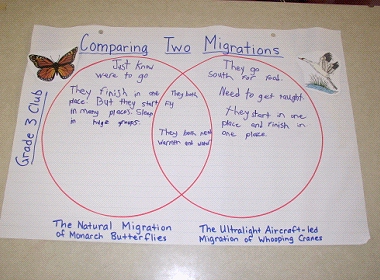 Comparing Two Migrations
Grade 3 Club
Just know
were to go
They finish in one
place. But they start
in many places. Sleep
in huge groups.
They both
fly
They both need
warmth and water
They go
South for food.
Need to get taught.
They start in one
place and finish in
one place.
The Natural Migration
of Monarch Butterflies
The Ultralight Aircraft-led
Migration of Whooping Cranes